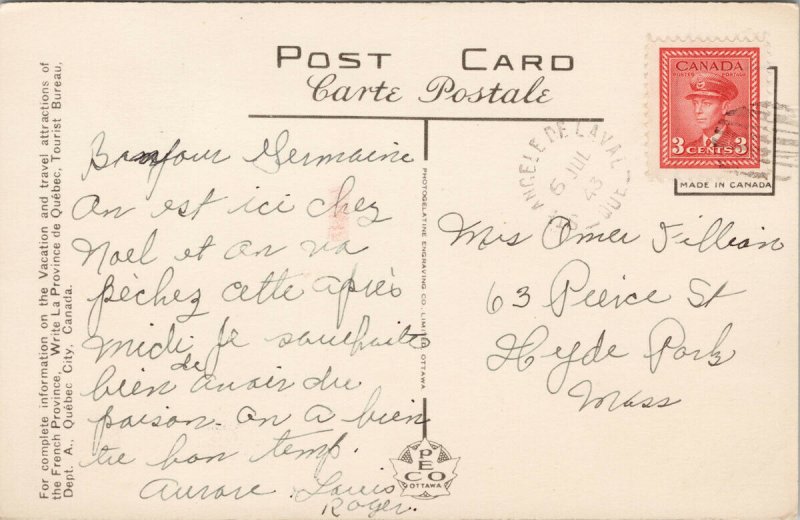 POST CARD
Carte Postale
CANADA
POSTES POSTAGE
3 CENTS 3
MADE IN CANADA
ANGELE DE LAVAL
5 JUL
43
QUE.
For complete information on the Vacation and travel attractions of
the French Province, Write La Province de Québec, Tourist Bureau,
Dept. A., Québec City, Canada.
Bonjour Germaine
On est ici chez
Noel et on va
pèchez cette après
midi je souhaite
bien de avoir du
poison. on a bien
tu bon temp.
Aurore. Louis
Roger.
PHOTOGELATINE ENGRAVING CO., LIMITED, OTTAWA
PECO
OTTAWA
Mrs Omer Tillian
63 Pierce St
Hyde Park
Mass